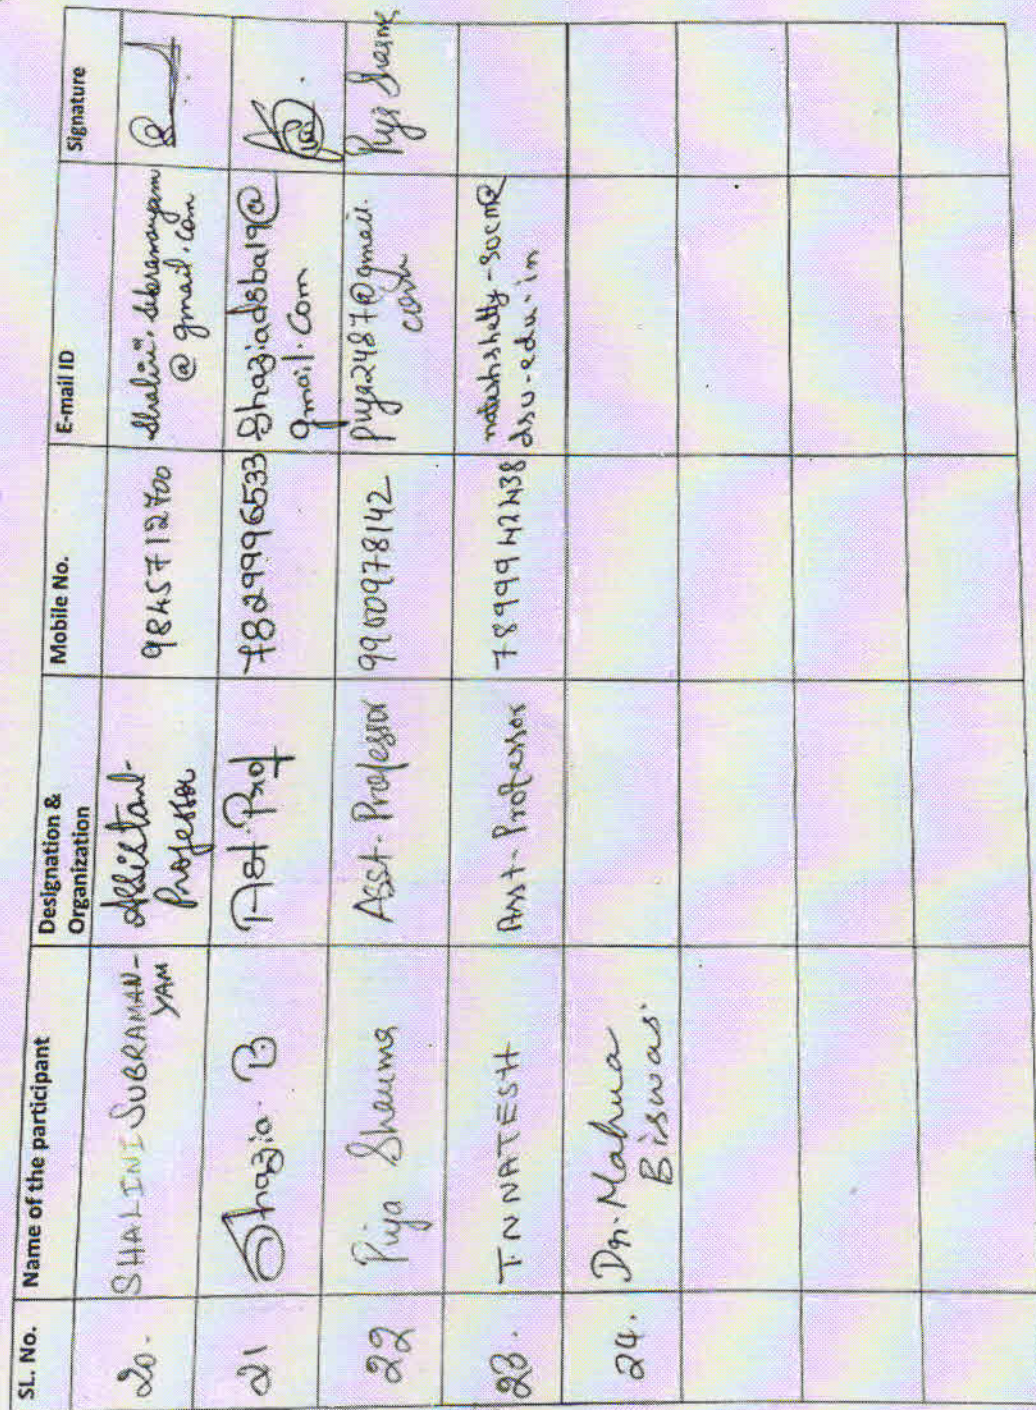 SL. No. Name of the participant Designation & Organization Mobile No. E-mail ID Signature
20. SHALINI SUBRAMAN-YAM Assistant-Professor 9845712700 shalini.subramanyam@gmail.com
21 Shazia B Ast. Prof 7829996533 Shaziadsba19@gmail.com
22 Piya Sharma Asst. Professor 9900978142 piya2487@gmail.com Piya Sharma
23. T N NATESH Asst. Professor 7899942438 dsu.edu.in
24. Dr. Mahua Biswas.